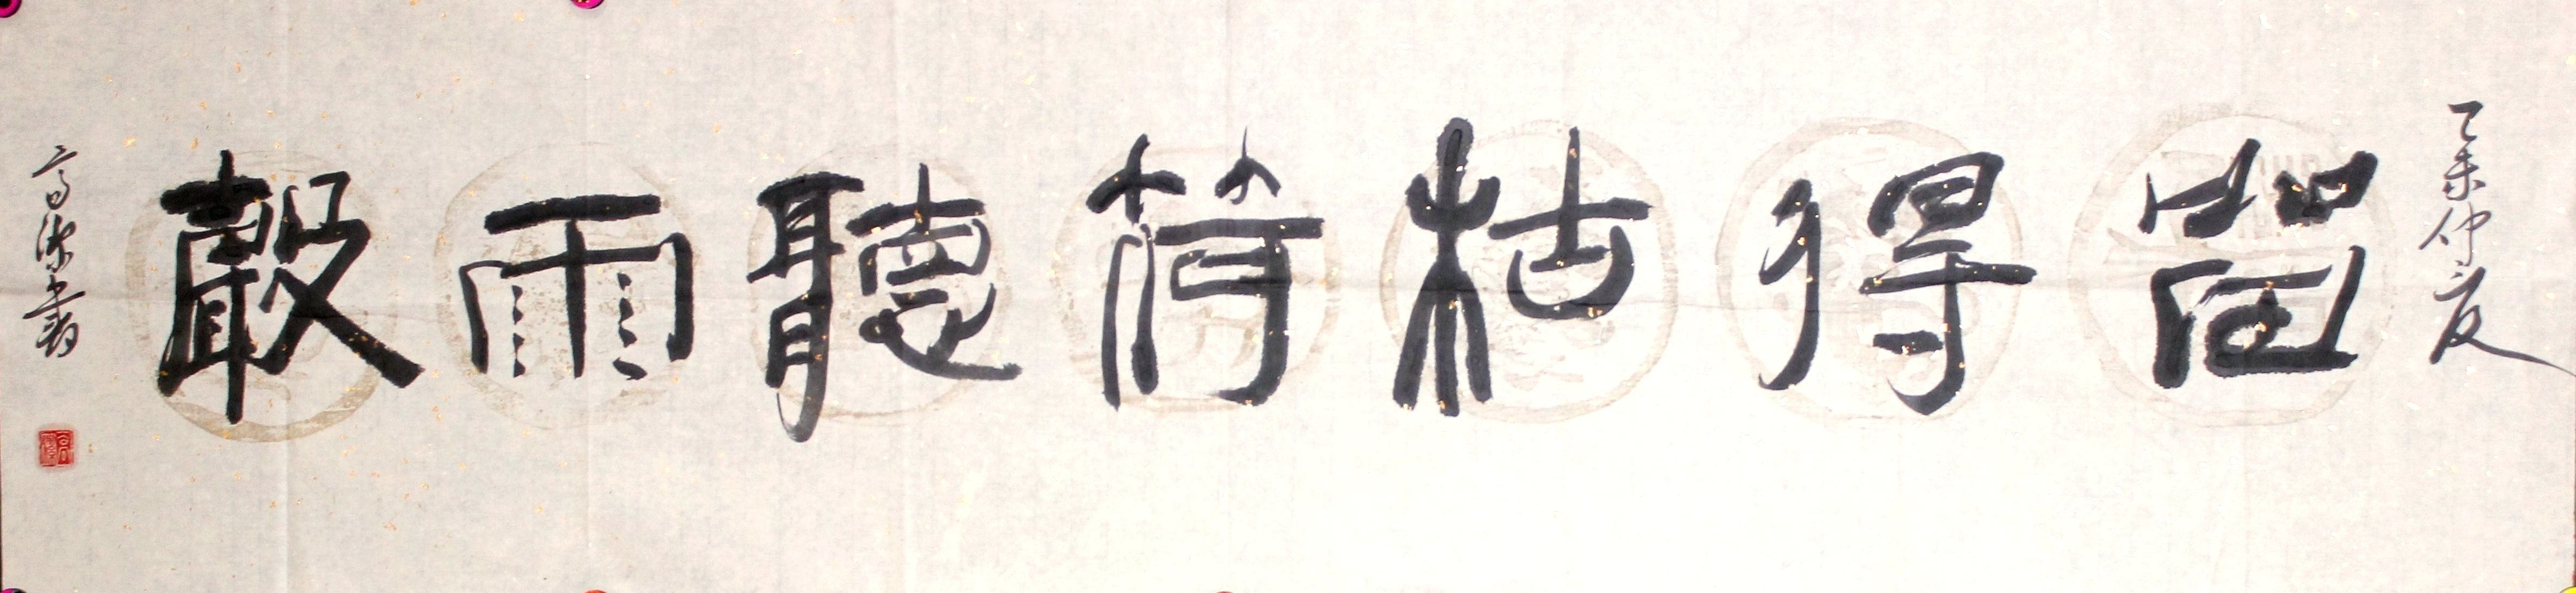 乙未仲夏
留得枯荷聽雨聲
高書